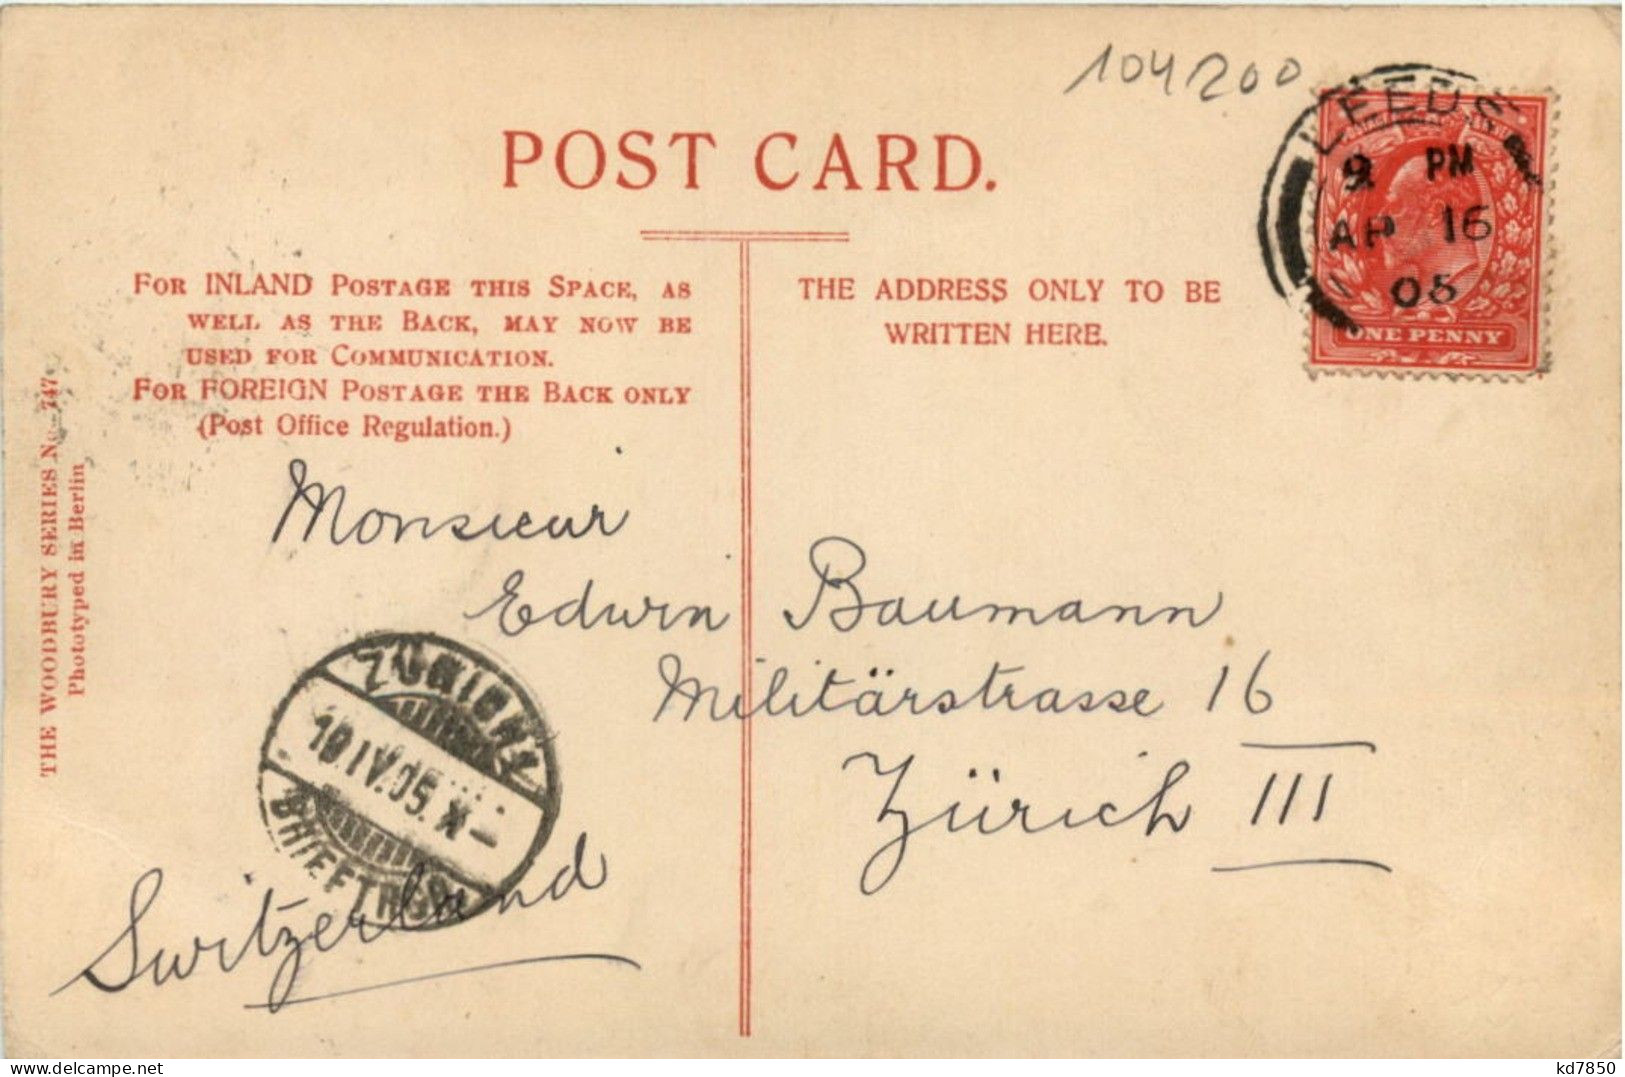 104200
POST CARD.
LEEDS
9 PM
AP 16
05
ONE PENNY
FOR INLAND POSTAGE THIS SPACE, AS
WELL AS THE BACK, MAY NOW BE
USED FOR COMMUNICATION.
FOR FOREIGN POSTAGE THE BACK ONLY
(Post Office Regulation.)
THE ADDRESS ONLY TO BE
WRITTEN HERE.
THE WOODBURY SERIES No. 747
Phototyped in Berlin
Monsieur
Edwin Baumann
Militärstrasse 16
Zürich III
Switzerland
ZÜRICH 1
19.IV.05. X—
BRIEFTRÄGER
delcampe.net
kd7850